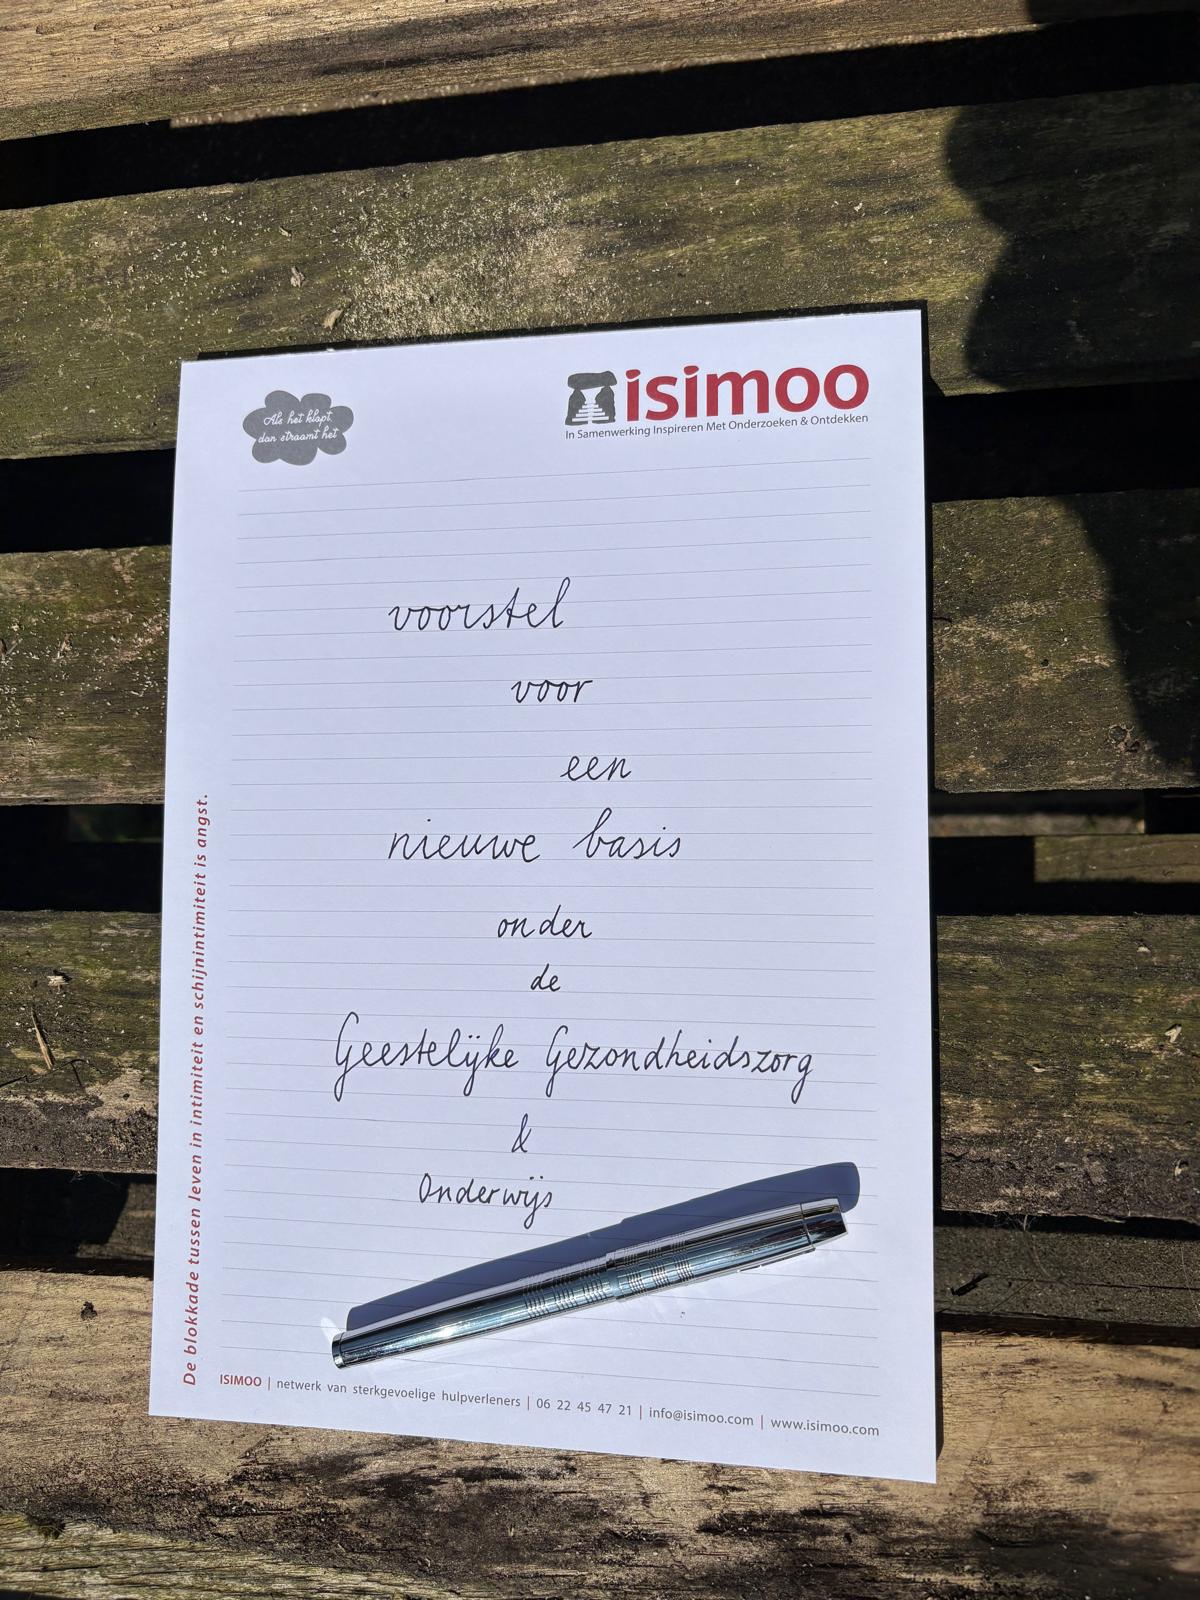 Als het klopt,
dan straamt het
isimoo
In Samenwerking Inspireren Met Onderzoeken & Ontdekken
voorstel
voor
een
nieuwe basis
onder
de
Geestelijke Gezondheidszorg
&
Onderwijs
De blokkade tussen leven in intimiteit en schijnintimiteit is angst.
ISIMOO | netwerk van sterkgevoelige hulpverleners | 06 22 45 47 21 | info@isimoo.com | www.isimoo.com